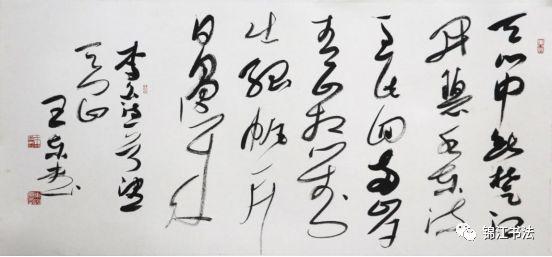 天门中断楚江
开碧水东流
至此回两岸
青山相对
出孤帆一片
日边来
天门山
锦江书法